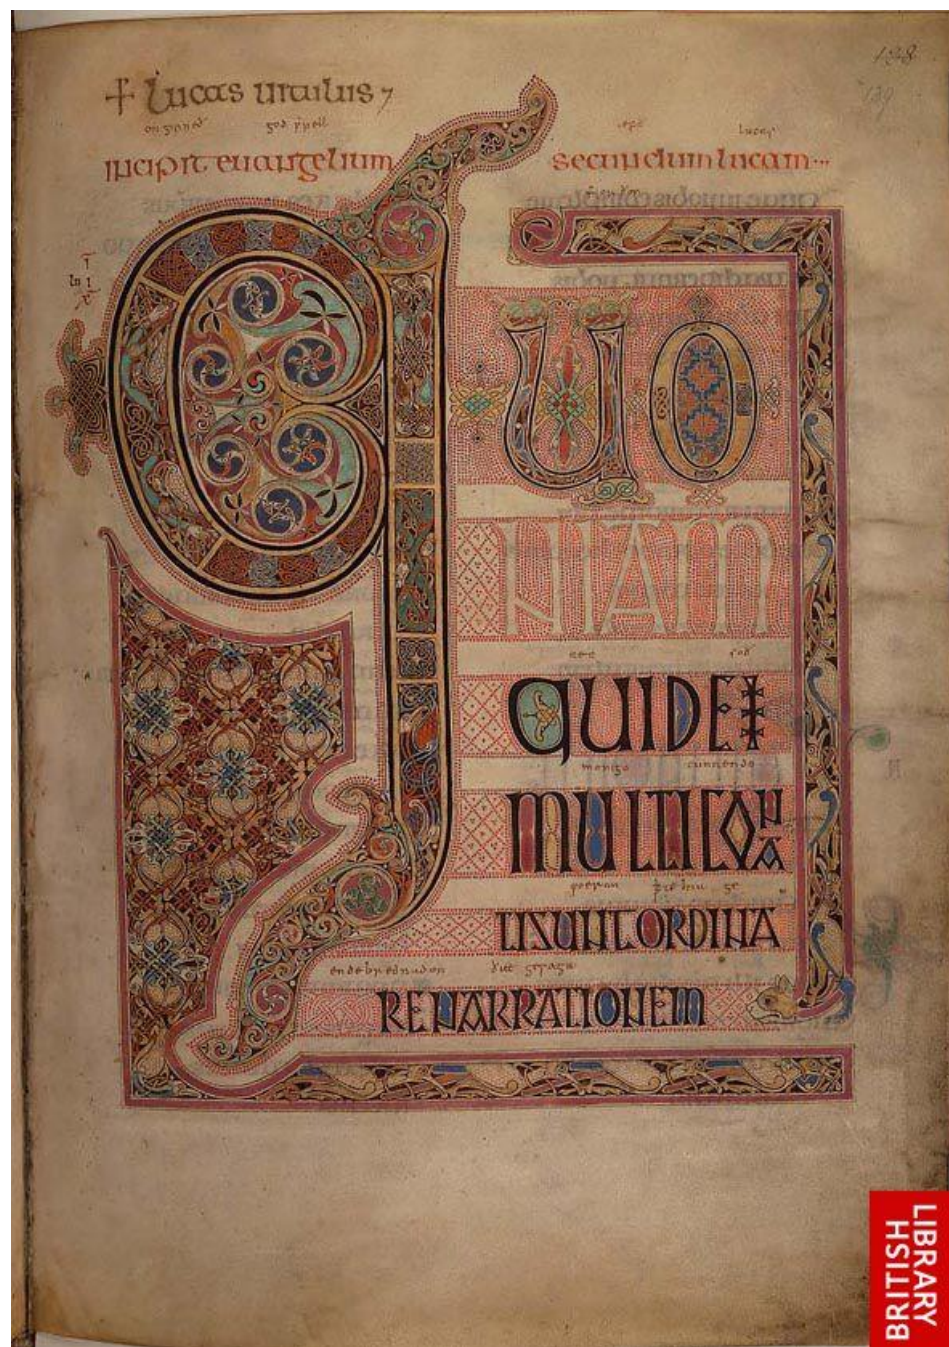 138
139
+ Lucas uitulus
onginneð god spell
incipit euangelium secundum lucam
Q UO
NIAM
QUIDEM
monigo cunnendo
MULTI CONA
TI SUNT ORDINA
RE NARRATIONEM
BRITISH
LIBRARY